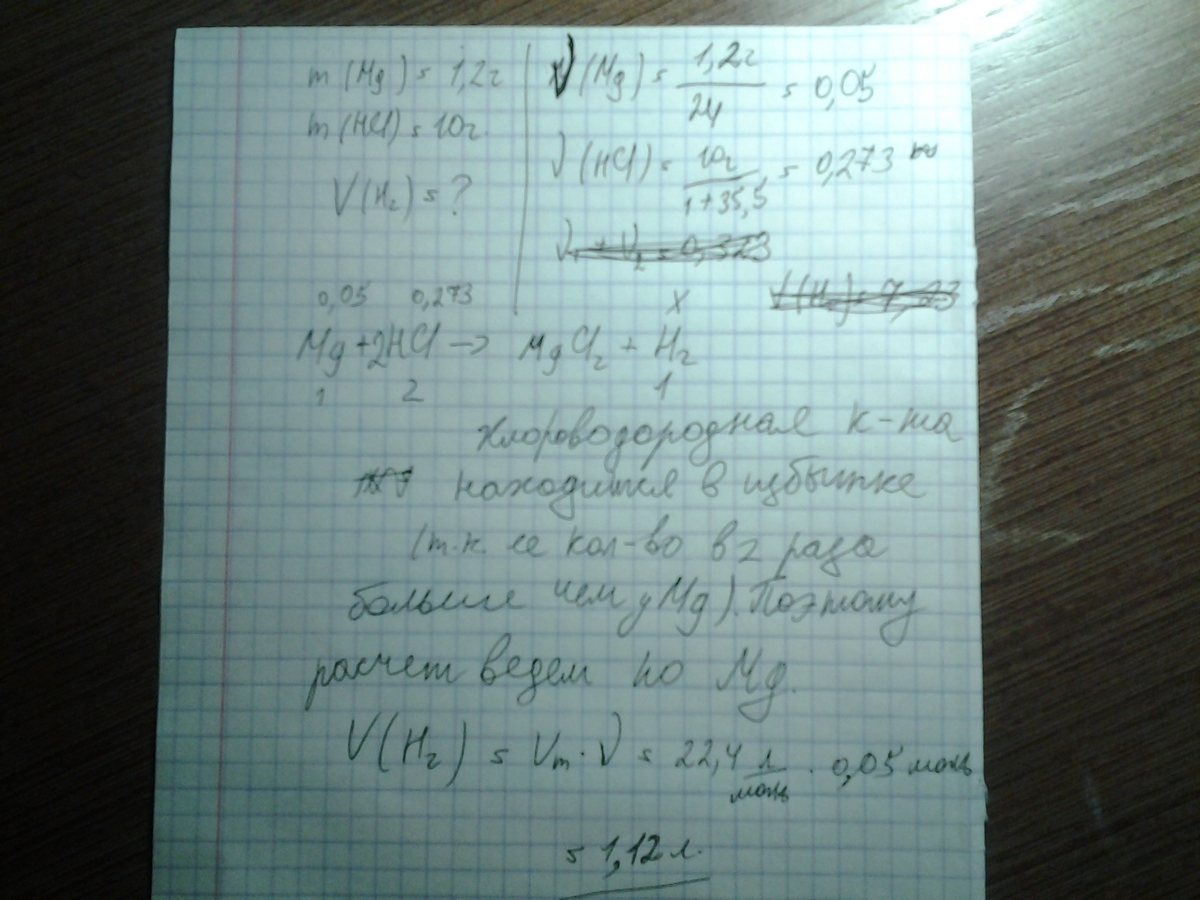 m (Mg) = 1,2г
m (HCl) = 10г
V(H₂) = ?
ν (Mg) = 1,2г / 24 = 0,05
ν (HCl) = 10г / 1+35,5 = 0,273
ν₁ + ν₂ = 0,323
0,05 0,273 x
Mg + 2HCl → MgCl₂ + H₂
1 2 1
Хлороводородная к-та
находится в избытке
(т.к. ее кол-во в 2 раза
больше чем у Mg). Поэтому
расчет ведем по Mg.
V(H₂) = Vm · ν = 22,4 л/моль · 0,05 моль
= 1,12 л.